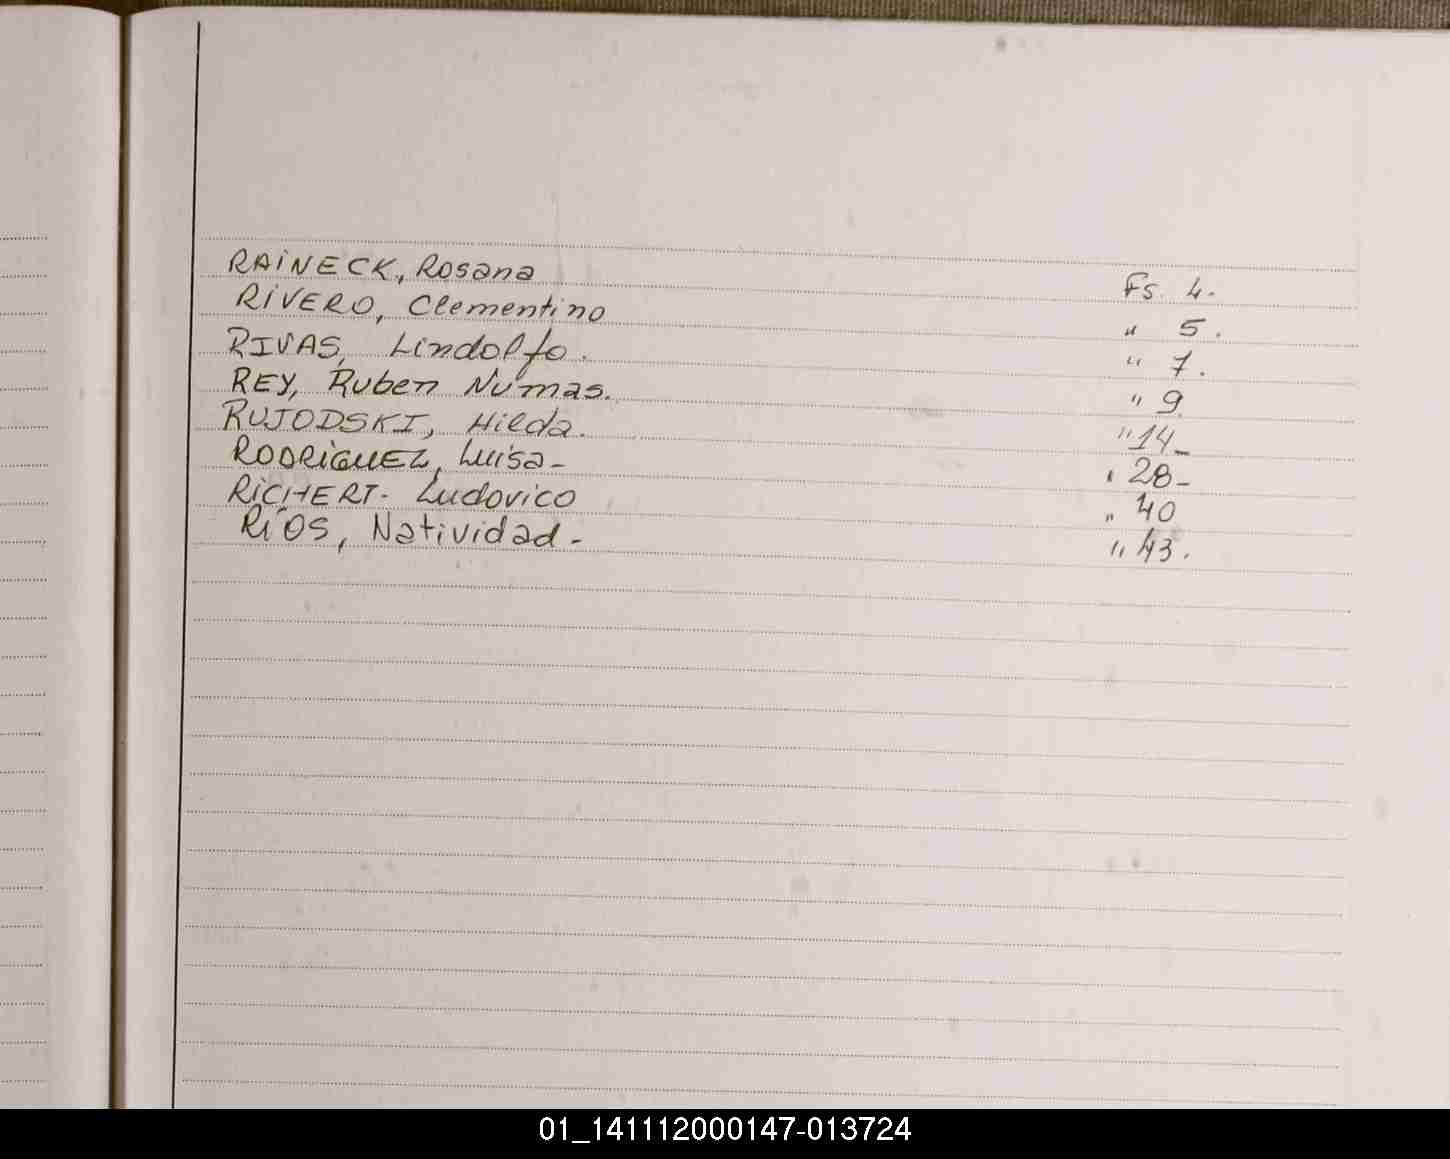 RAINECK, Rosana Fs. 4.
RIVERO, Clementino " 5.
RIVAS, Lindolfo. " 7.
REY, Ruben Numas. " 9
RUJODSKI, Hilda. " 14_
RODRIGUEZ, Luisa_ " 28_
RICHERT- Ludovico " 40
RÍOS, Natividad- " 43.
01_141112000147-013724